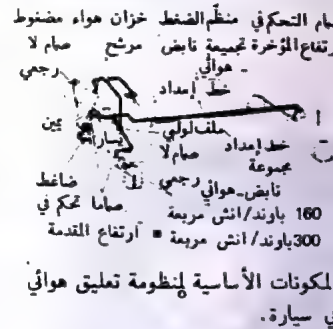 مام التحكم في منظّم الضغط خزان هواء مضغوط
رتفاع المؤخرة تجميعة نابض مرشح صمام لا
هوائي رجعي
خط إمداد
ملف لولبي
يمين يسار خط إمداد
صمام لا مجموعة
ضاغط رجعي نابض هوائي
صماما تحكم في 160 باوند/انش مربعة
ارتفاع المقدمة 300 باوند/انش مربعة
لمكونات الأساسية لمنظومة تعليق هوائي
ي سيارة.